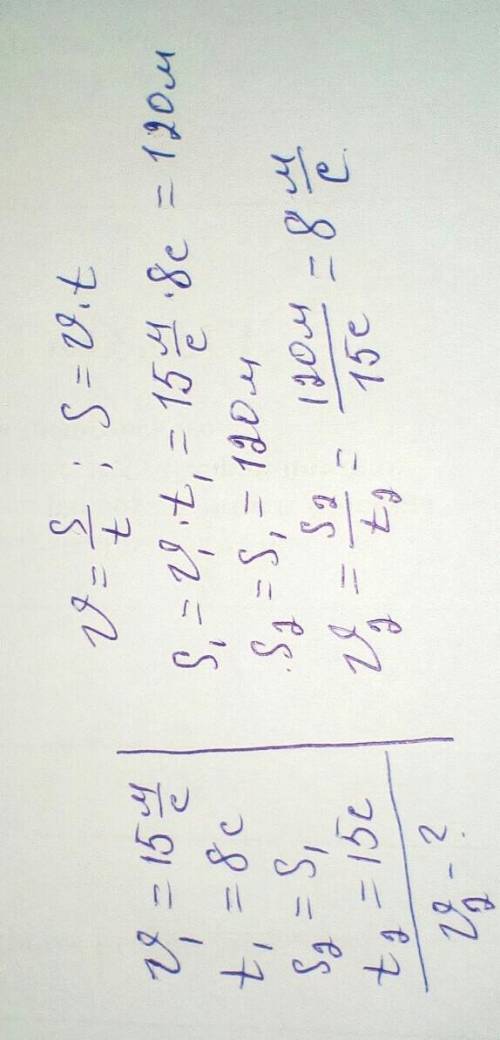 υ₁ = 15 м/с
t₁ = 8с
S₂ = S₁
t₂ = 15с
υ₂ - ?
υ = S/t ; S = υ · t
S₁ = υ₁ · t₁ = 15 м/с · 8с = 120м
S₂ = S₁ = 120м
υ₂ = S₂/t₂ = 120м/15с = 8 м/с